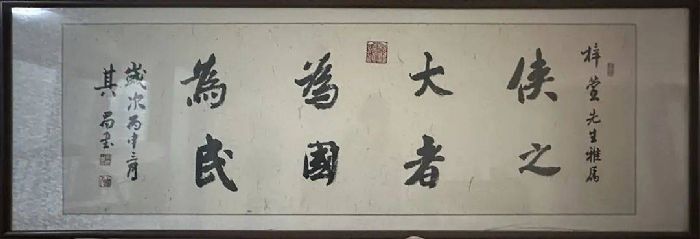 梓萱先生雅属
侠之
大者
为國
為民
歲次丙申三月
其
书